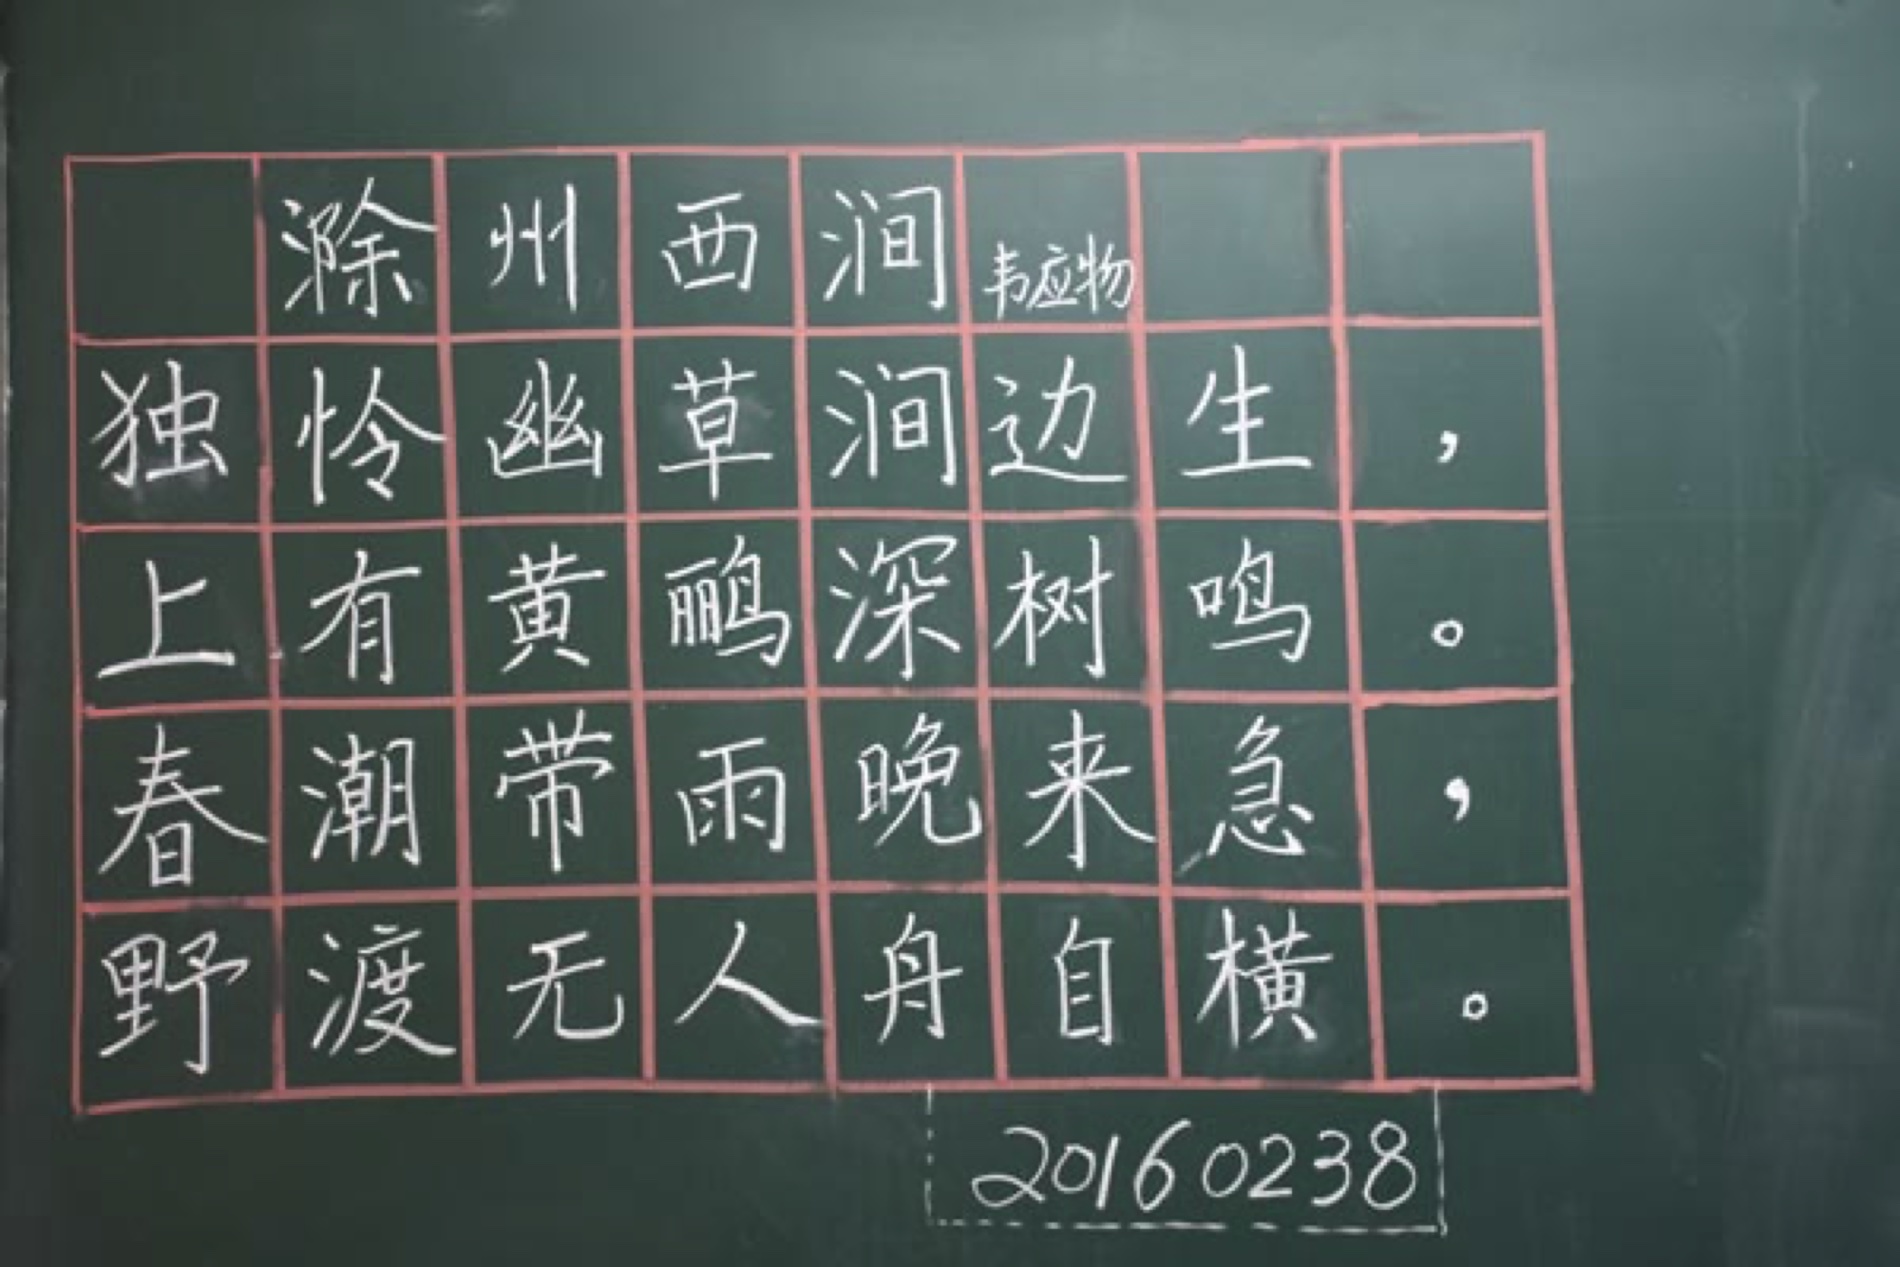 滁州西涧 韦应物
独怜幽草涧边生，
上有黄鹂深树鸣。
春潮带雨晚来急，
野渡无人舟自横。
20160238